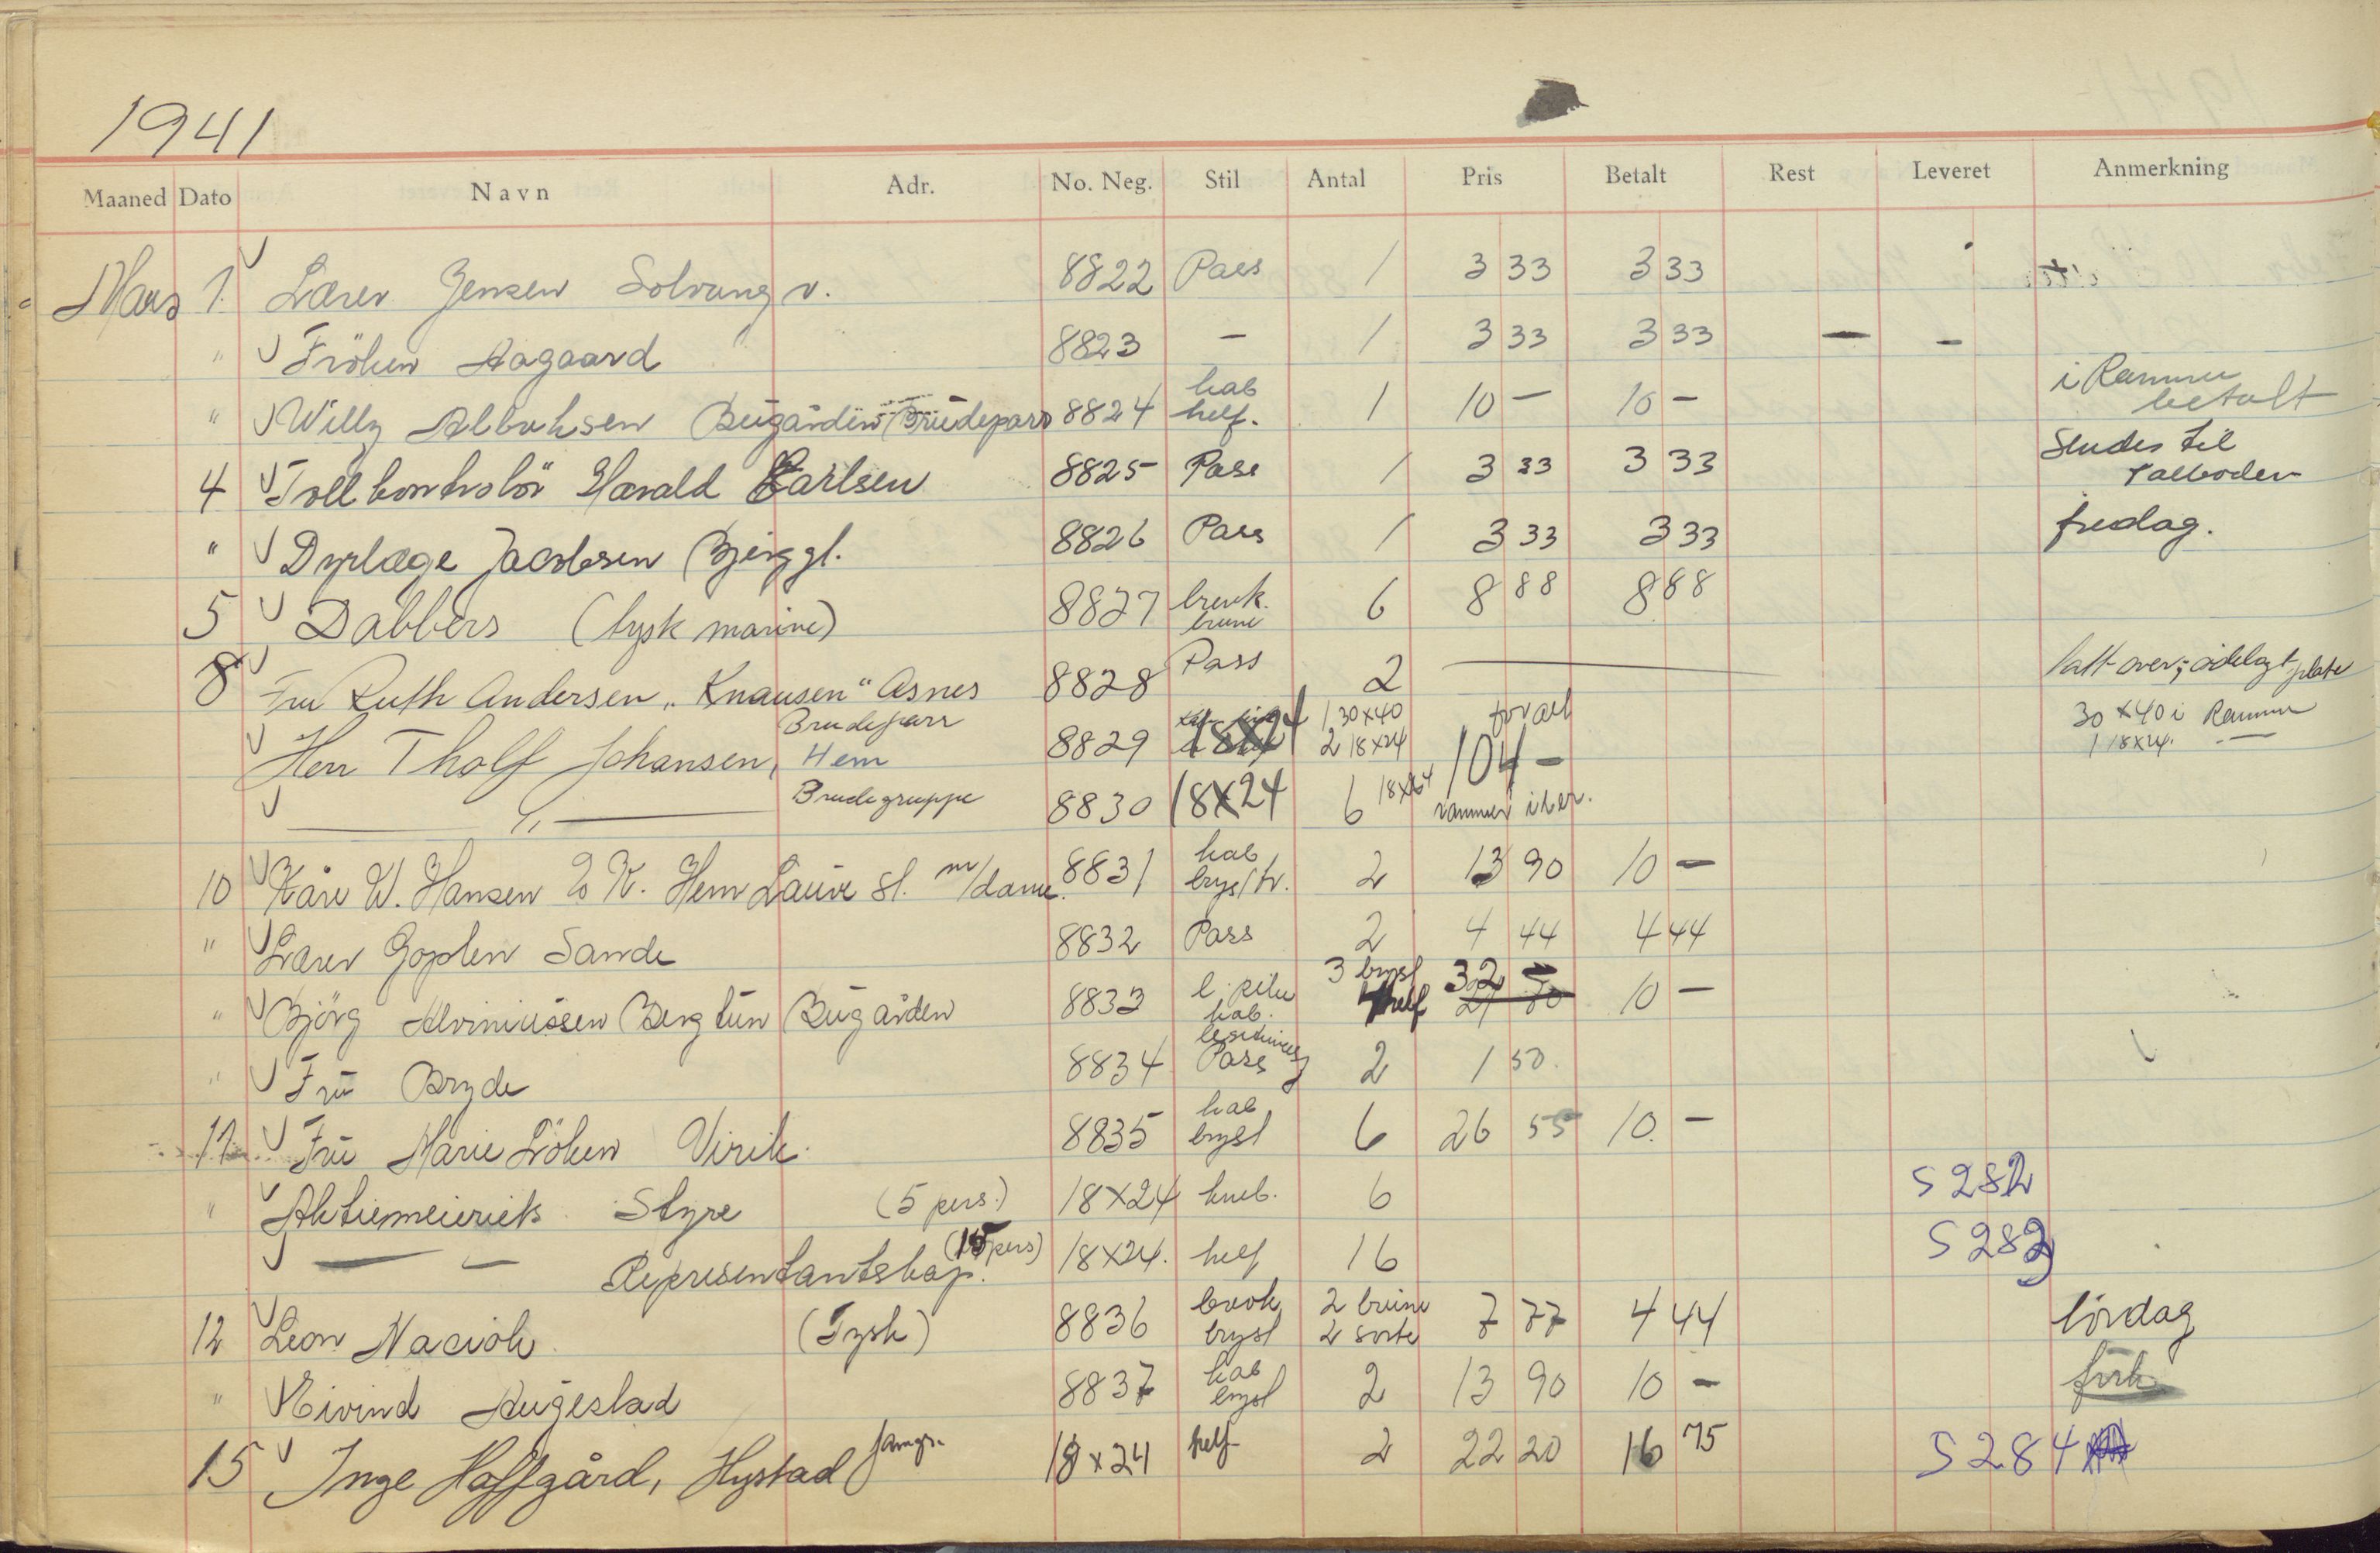 1941
Maaned Dato Navn Adr. No. Neg. Stil Antal Pris Betalt Rest Leveret Anmerkning
Mars 1. Lærer Jensen Solvang v. 8822 Pass 1 3 33 3 33
" Fröken Aagaard 8823 - 1 3 33 3 33 - -
" Willy Albrektsen Bugården Brudepar 8824 kab helf. 1 10 - 10 - i Ramme betalt
4 Tollkontrolör Harald Carlsen 8825 Pass 1 3 33 3 33 Sendes til Tallboden
" Dyrlæge Jacobsen Bjerggl. 8826 Pass 1 3 33 3 33 fredag.
5 Dabbers (tysk marine) 8827 brevk. brune 6 8 88 8 88
8 Fru Ruth Andersen „Knausen" Åsnes 8828 Pass 2 tatt over; ödelagt plate
Herr Tholf Johansen, Brudeparr Hem 8829 18x24 1 30x40 2 18x24 for alt 104 - 30x40 i Ramme 1 18x24. -
— " — Brudegruppe 8830 18x24 6 18x24 rammer iber.
10 Kåre W. Hansen Hem Lauve st. m/dame. 8831 kab bryst 2 13 90 10 -
" Lærer Goplen Sande 8832 Pass 2 4 44 4 44
" Björg Alviniussen Bergtun Bugården 8833 kab. 3 bryst helf 32 10 -
" Fru Bryde 8834 Pass 2 1 50.
11 Fru Marie Löken Virik. 8835 kab bryst 6 26 55 10. -
" Aktiemeieriets Styre (5 pers.) 18x24 kneb. 6 S 282
— - Representantskap. (15 pers) 18x24. helf 16 S 283
12 Leon Naciok (Tysk) 8836 brevk bryst 2 brune 2 sorte 7 77 4 44 lördag
" Eivind Augestad 8837 kab bryst 2 13 90 10 -
15 Inge Hoffgård, Hystad famgr. 18x24 helf 2 22 20 16 75 S 284